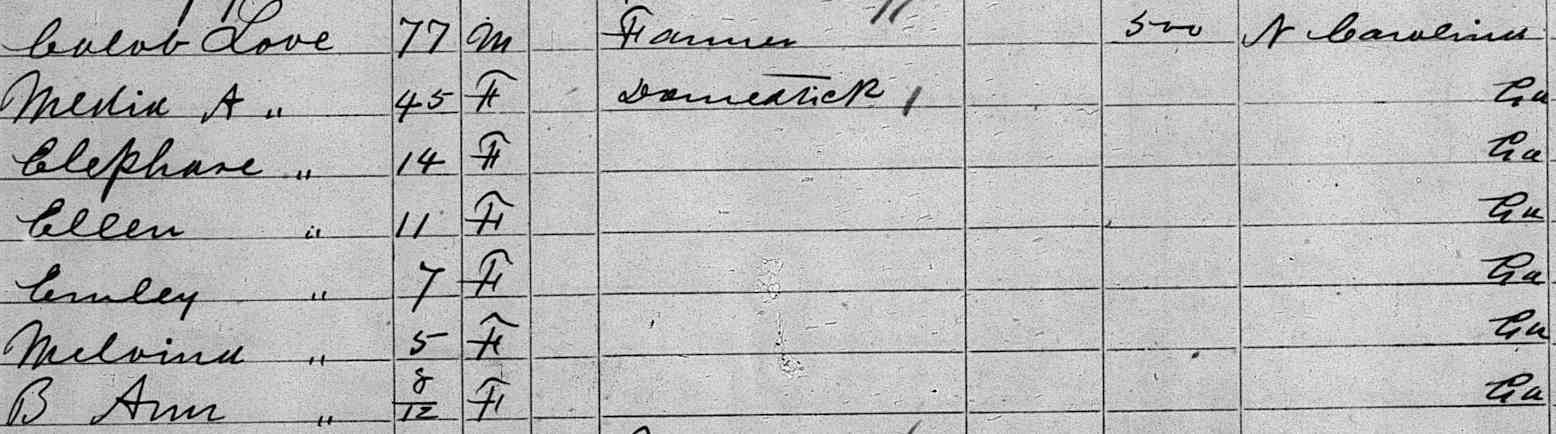 Caleb Love 77 M Farmer 500 N Carolina
Media A " 45 F Domestick Ga
Elephare " 14 F Ga
Ellen " 11 F Ga
Emley " 7 F Ga
Melvina " 5 F Ga
B Ann " 8/12 F Ga